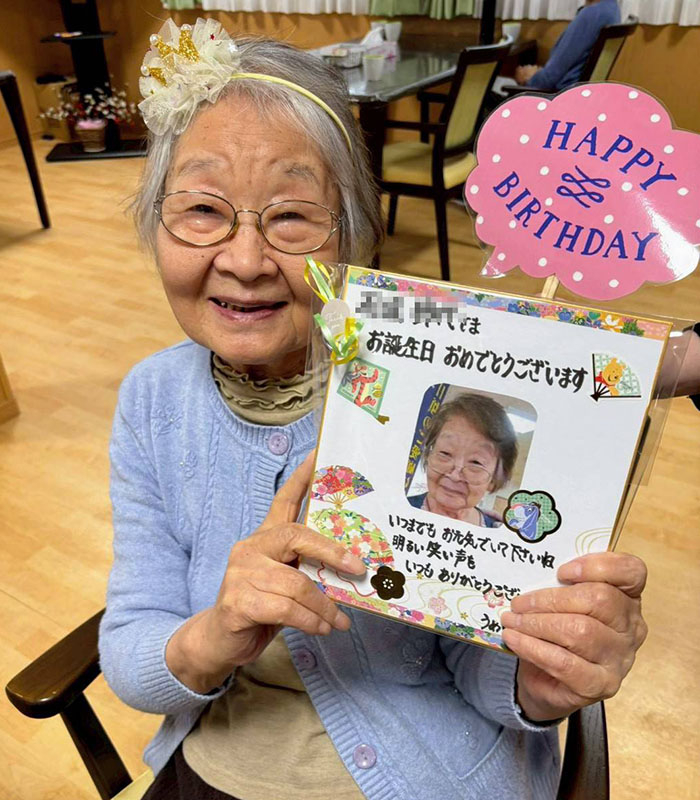 HAPPY
BIRTHDAY
さま
お誕生日 おめでとうございます
いつまでも お元気でいて下さいね
明るい笑い声も
いつも ありがとうござ
うめ